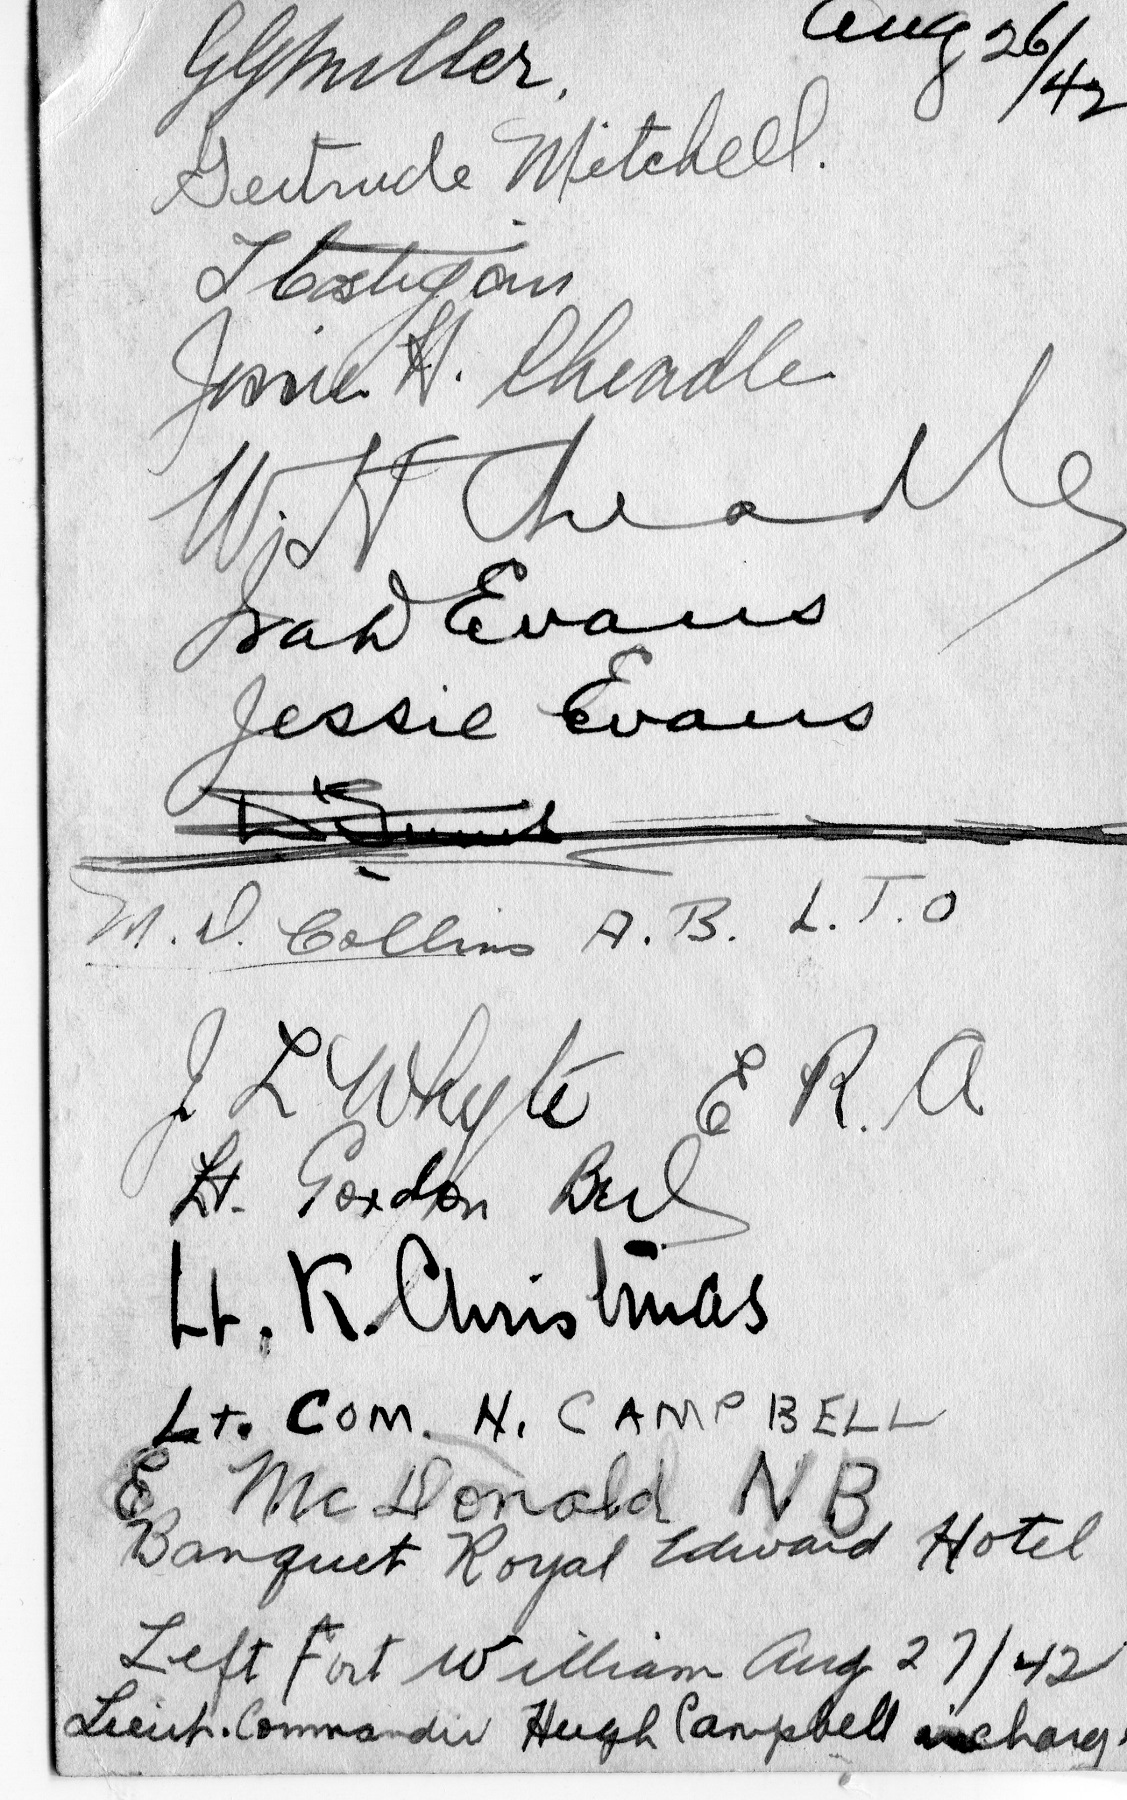 Aug 26/42
GG Muller.
Gertrude Mitchell.
T Costigan
Jessie H. Cheadle
W. H Cheadle
Evans
Jessie Evans
M. D. Collins A. B. L. T. O
J L Whyte E R. A
Lt. Gordon
Lt. K. Christmas
Lt. COM. H. CAMPBELL
E McDonald N B
Banquet Royal Edward Hotel
Left Fort William Aug 27/42
Lieut. Commander Hugh Campbell in charge